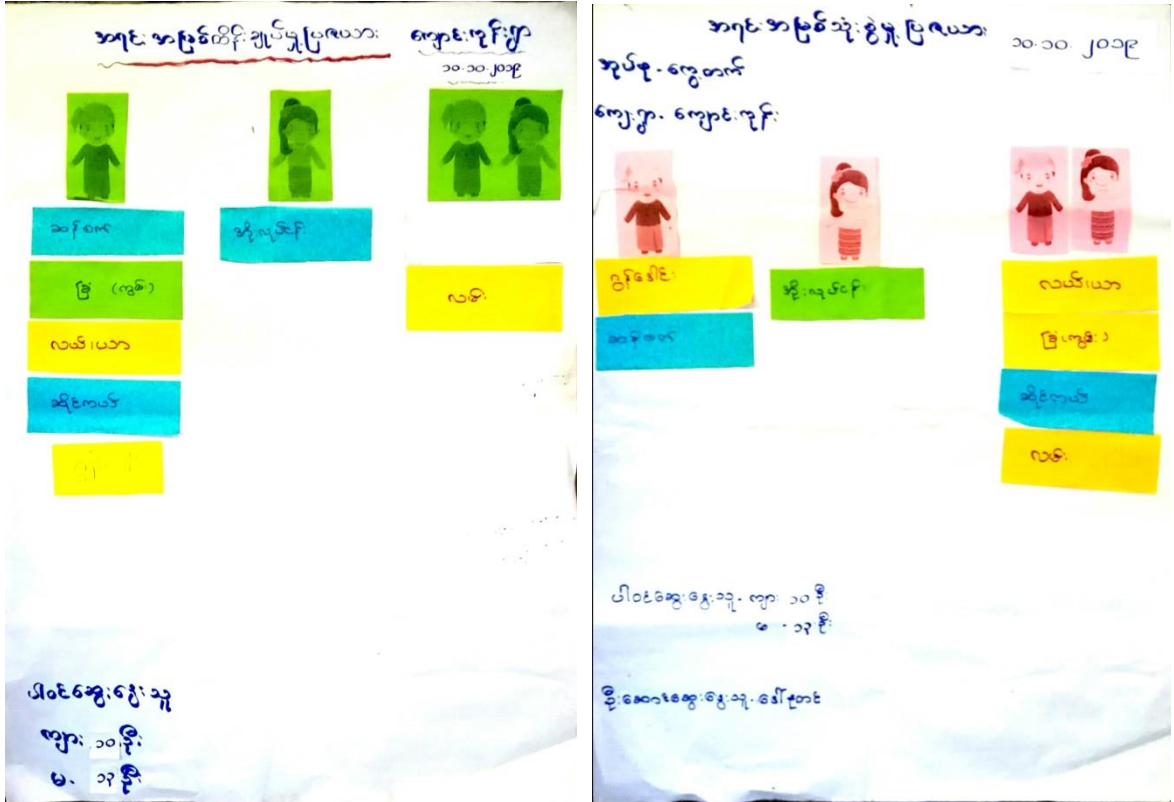 အရင်းအမြစ်ထိန်းချုပ်မှုပြဇယား
ကျောင်းကုန်းရွာ
၁၀.၁၀.၂၀၁၉
ဆန်စက်
ခြံ (ကွမ်း)
လယ်၊ယာ
ဆိုင်ကယ်
အိုးလုပ်ငန်း
လမ်း
ပါဝင်ဆွေးနွေးသူ
ကျား ၁၀ ဦး
မ - ၁၃ ဦး
အရင်းအမြစ်သုံးစွဲမှုပြဇယား
၁၀.၁၀.၂၀၁၉
အုပ်စု - ကွေ့တက်
ကျေးရွာ - ကျောင်းကုန်း
ဂွန်ဒေါင်း
ဆန်စက်
အိုးလုပ်ငန်း
လယ်၊ယာ
ခြံ(ကွမ်း)
ဆိုင်ကယ်
လမ်း
ပါဝင်ဆွေးနွေးသူ - ကျား ၁၀ ဦး
မ - ၁၃ ဦး
ဦးဆောင်ဆွေးနွေးသူ - ဒေါ်နုတင်